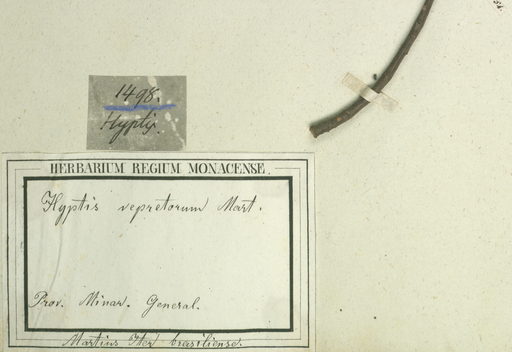 1498.
Hyptis.
HERBARIUM REGIUM MONACENSE.
Hyptis vepretorum Mart.
Prov. Minar. General.
Martius Iter brasiliense.